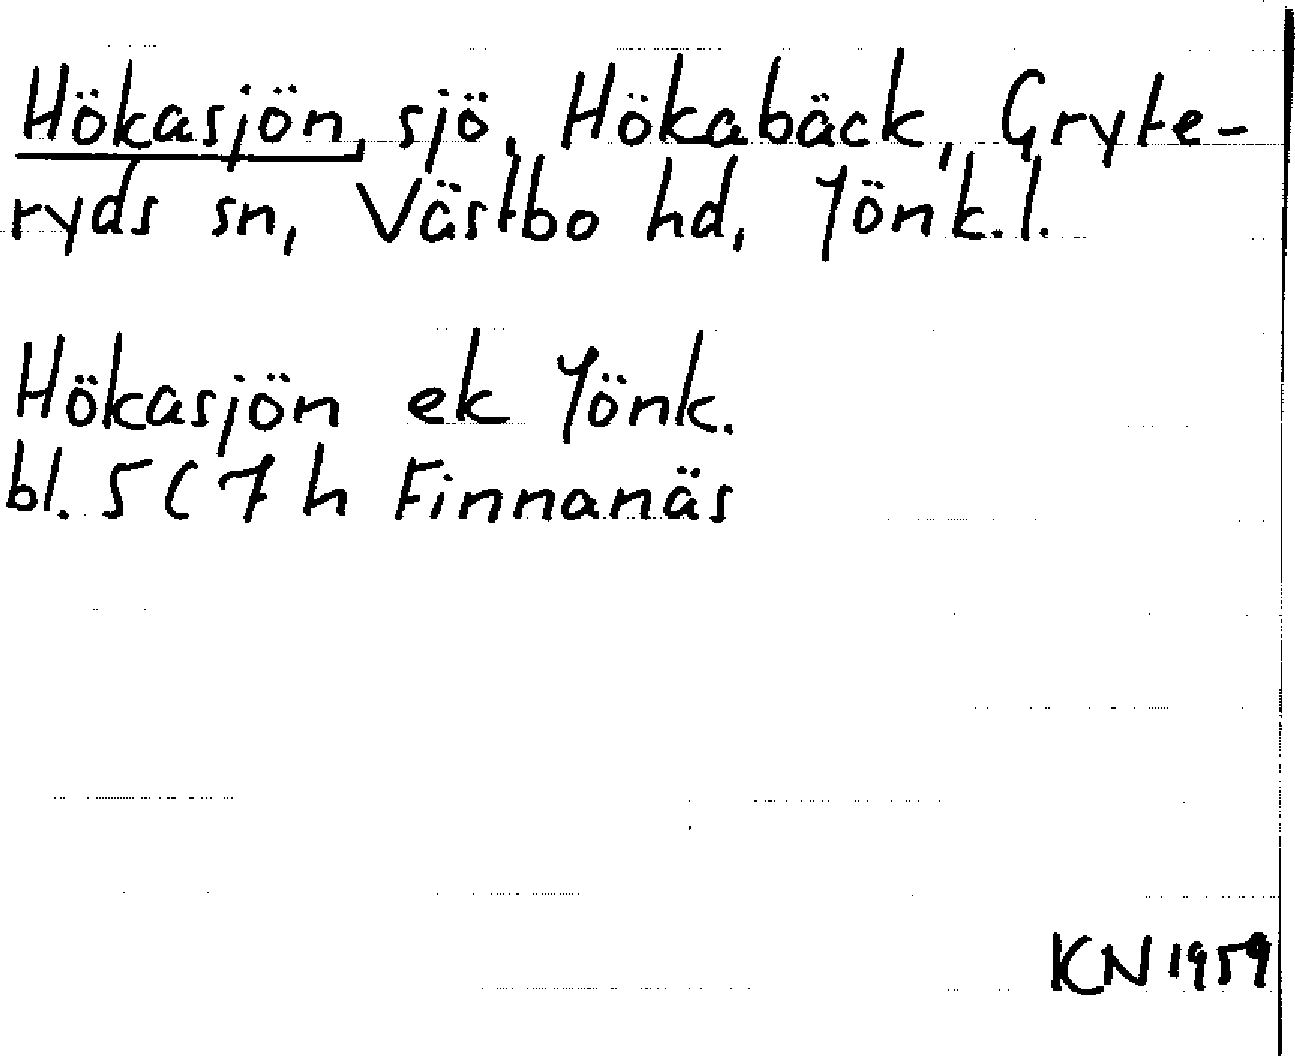 Hökasjön, sjö, Hökabäck, Gryte-
ryds sn, Västbo hd, Jönk.l.
Hökasjön ek Jönk.
bl. 5 C 7 h Finnanäs
KN 1959